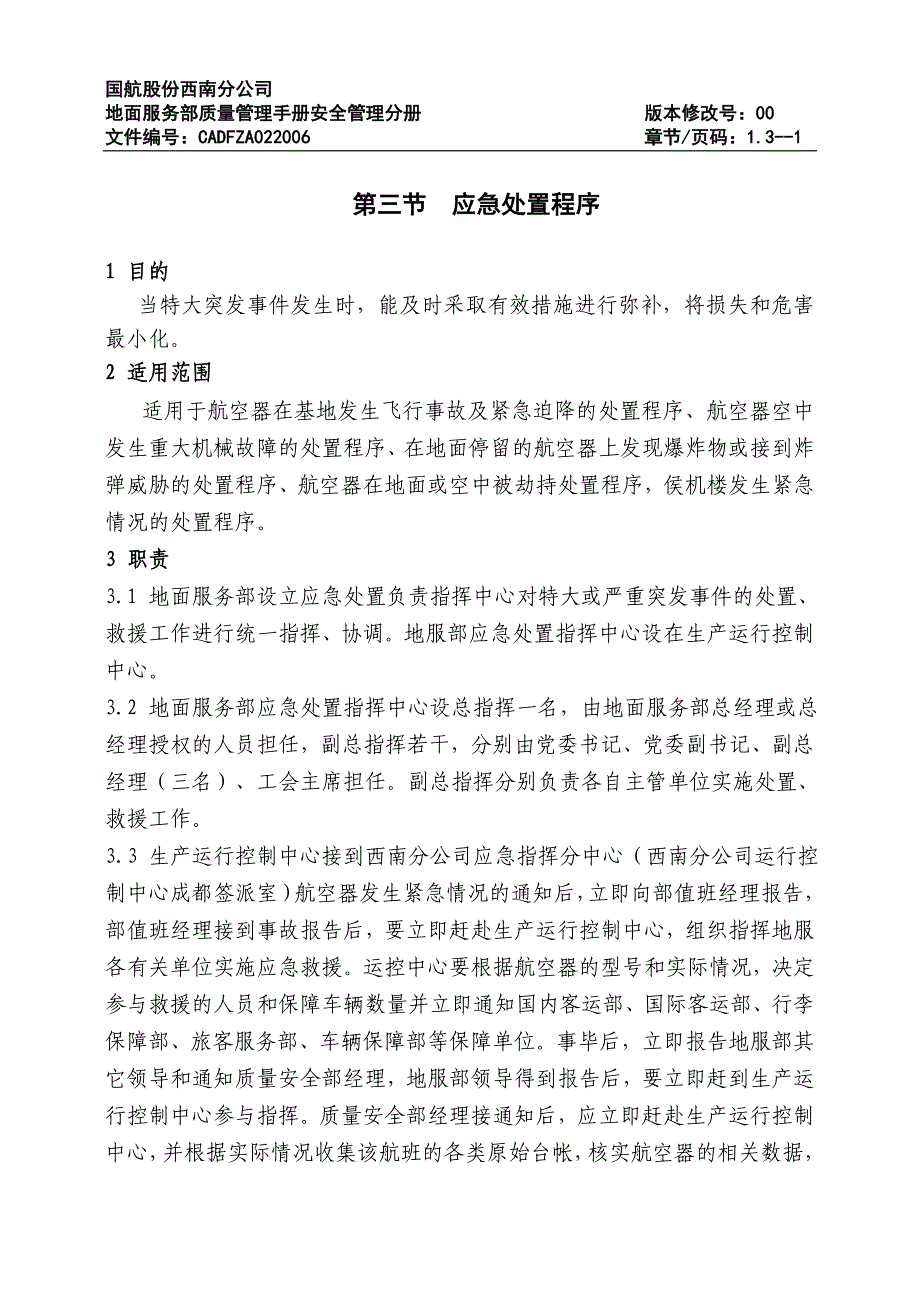 国航股份西南分公司
地面服务部质量管理手册安全管理分册 版本修改号：00
文件编号：CADFZA022006 章节/页码：1.3--1
第三节 应急处置程序
1 目的
当特大突发事件发生时，能及时采取有效措施进行弥补，将损失和危害
最小化。
2 适用范围
适用于航空器在基地发生飞行事故及紧急迫降的处置程序、航空器空中
发生重大机械故障的处置程序、在地面停留的航空器上发现爆炸物或接到炸
弹威胁的处置程序、航空器在地面或空中被劫持处置程序，侯机楼发生紧急
情况的处置程序。
3 职责
3.1 地面服务部设立应急处置负责指挥中心对特大或严重突发事件的处置、
救援工作进行统一指挥、协调。地服部应急处置指挥中心设在生产运行控制
中心。
3.2 地面服务部应急处置指挥中心设总指挥一名，由地面服务部总经理或总
经理授权的人员担任，副总指挥若干，分别由党委书记、党委副书记、副总
经理（三名）、工会主席担任。副总指挥分别负责各自主管单位实施处置、
救援工作。
3.3 生产运行控制中心接到西南分公司应急指挥分中心（西南分公司运行控
制中心成都签派室）航空器发生紧急情况的通知后，立即向部值班经理报告，
部值班经理接到事故报告后，要立即赶赴生产运行控制中心，组织指挥地服
各有关单位实施应急救援。运控中心要根据航空器的型号和实际情况，决定
参与救援的人员和保障车辆数量并立即通知国内客运部、国际客运部、行李
保障部、旅客服务部、车辆保障部等保障单位。事毕后，立即报告地服部其
它领导和通知质量安全部经理，地服部领导得到报告后，要立即赶到生产运
行控制中心参与指挥。质量安全部经理接通知后，应立即赶赴生产运行控制
中心，并根据实际情况收集该航班的各类原始台帐，核实航空器的相关数据，